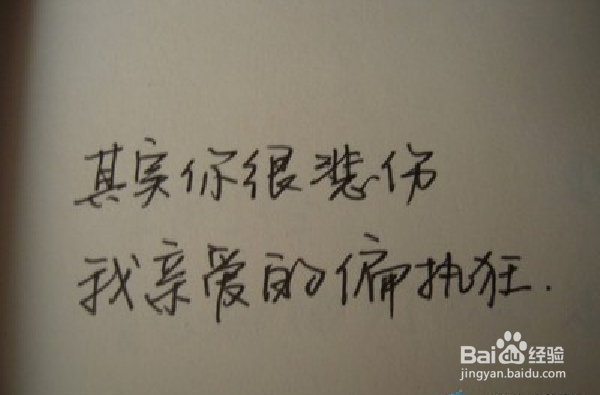 其实你很悲伤
我亲爱的偏执狂.
Baidu经验
jingyan.baidu.com